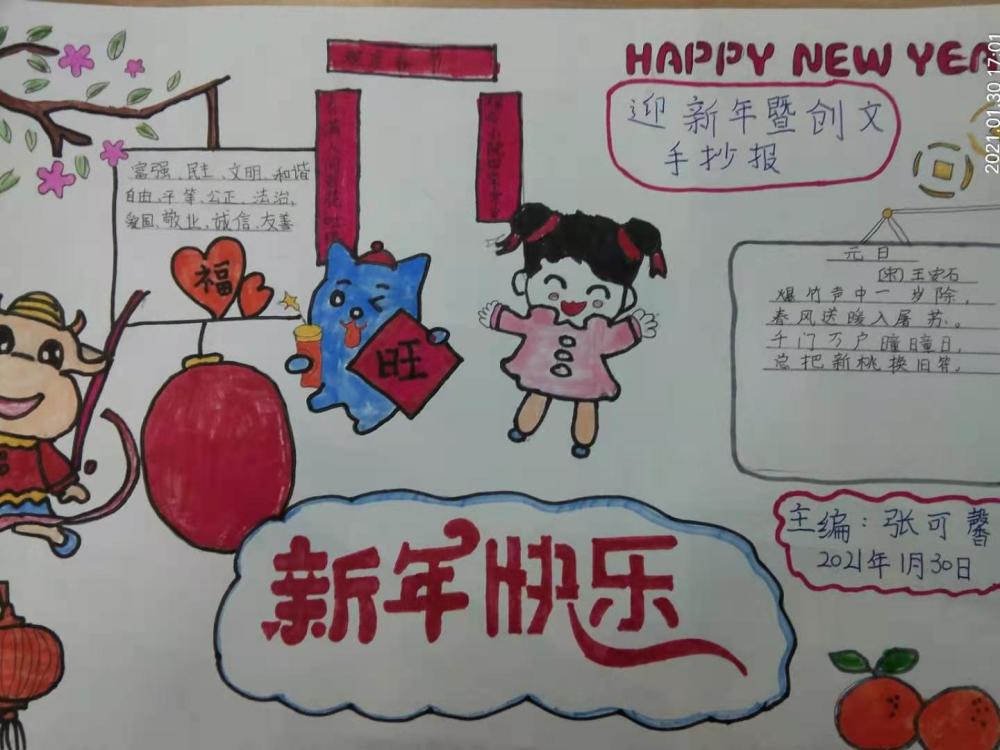 HAPPY NEW YEA
2021.01.30 17:01
迎新年暨创文
手抄报
富强、民主、文明、和谐
自由、平等、公正、法治,
爱国、敬业、诚信、友善
福
旺
元日
(宋)王安石
爆竹声中一岁除,
春风送暖入屠苏。
千门万户曈曈日,
总把新桃换旧符,
主编:张可馨
2021年1月30日
新年快乐